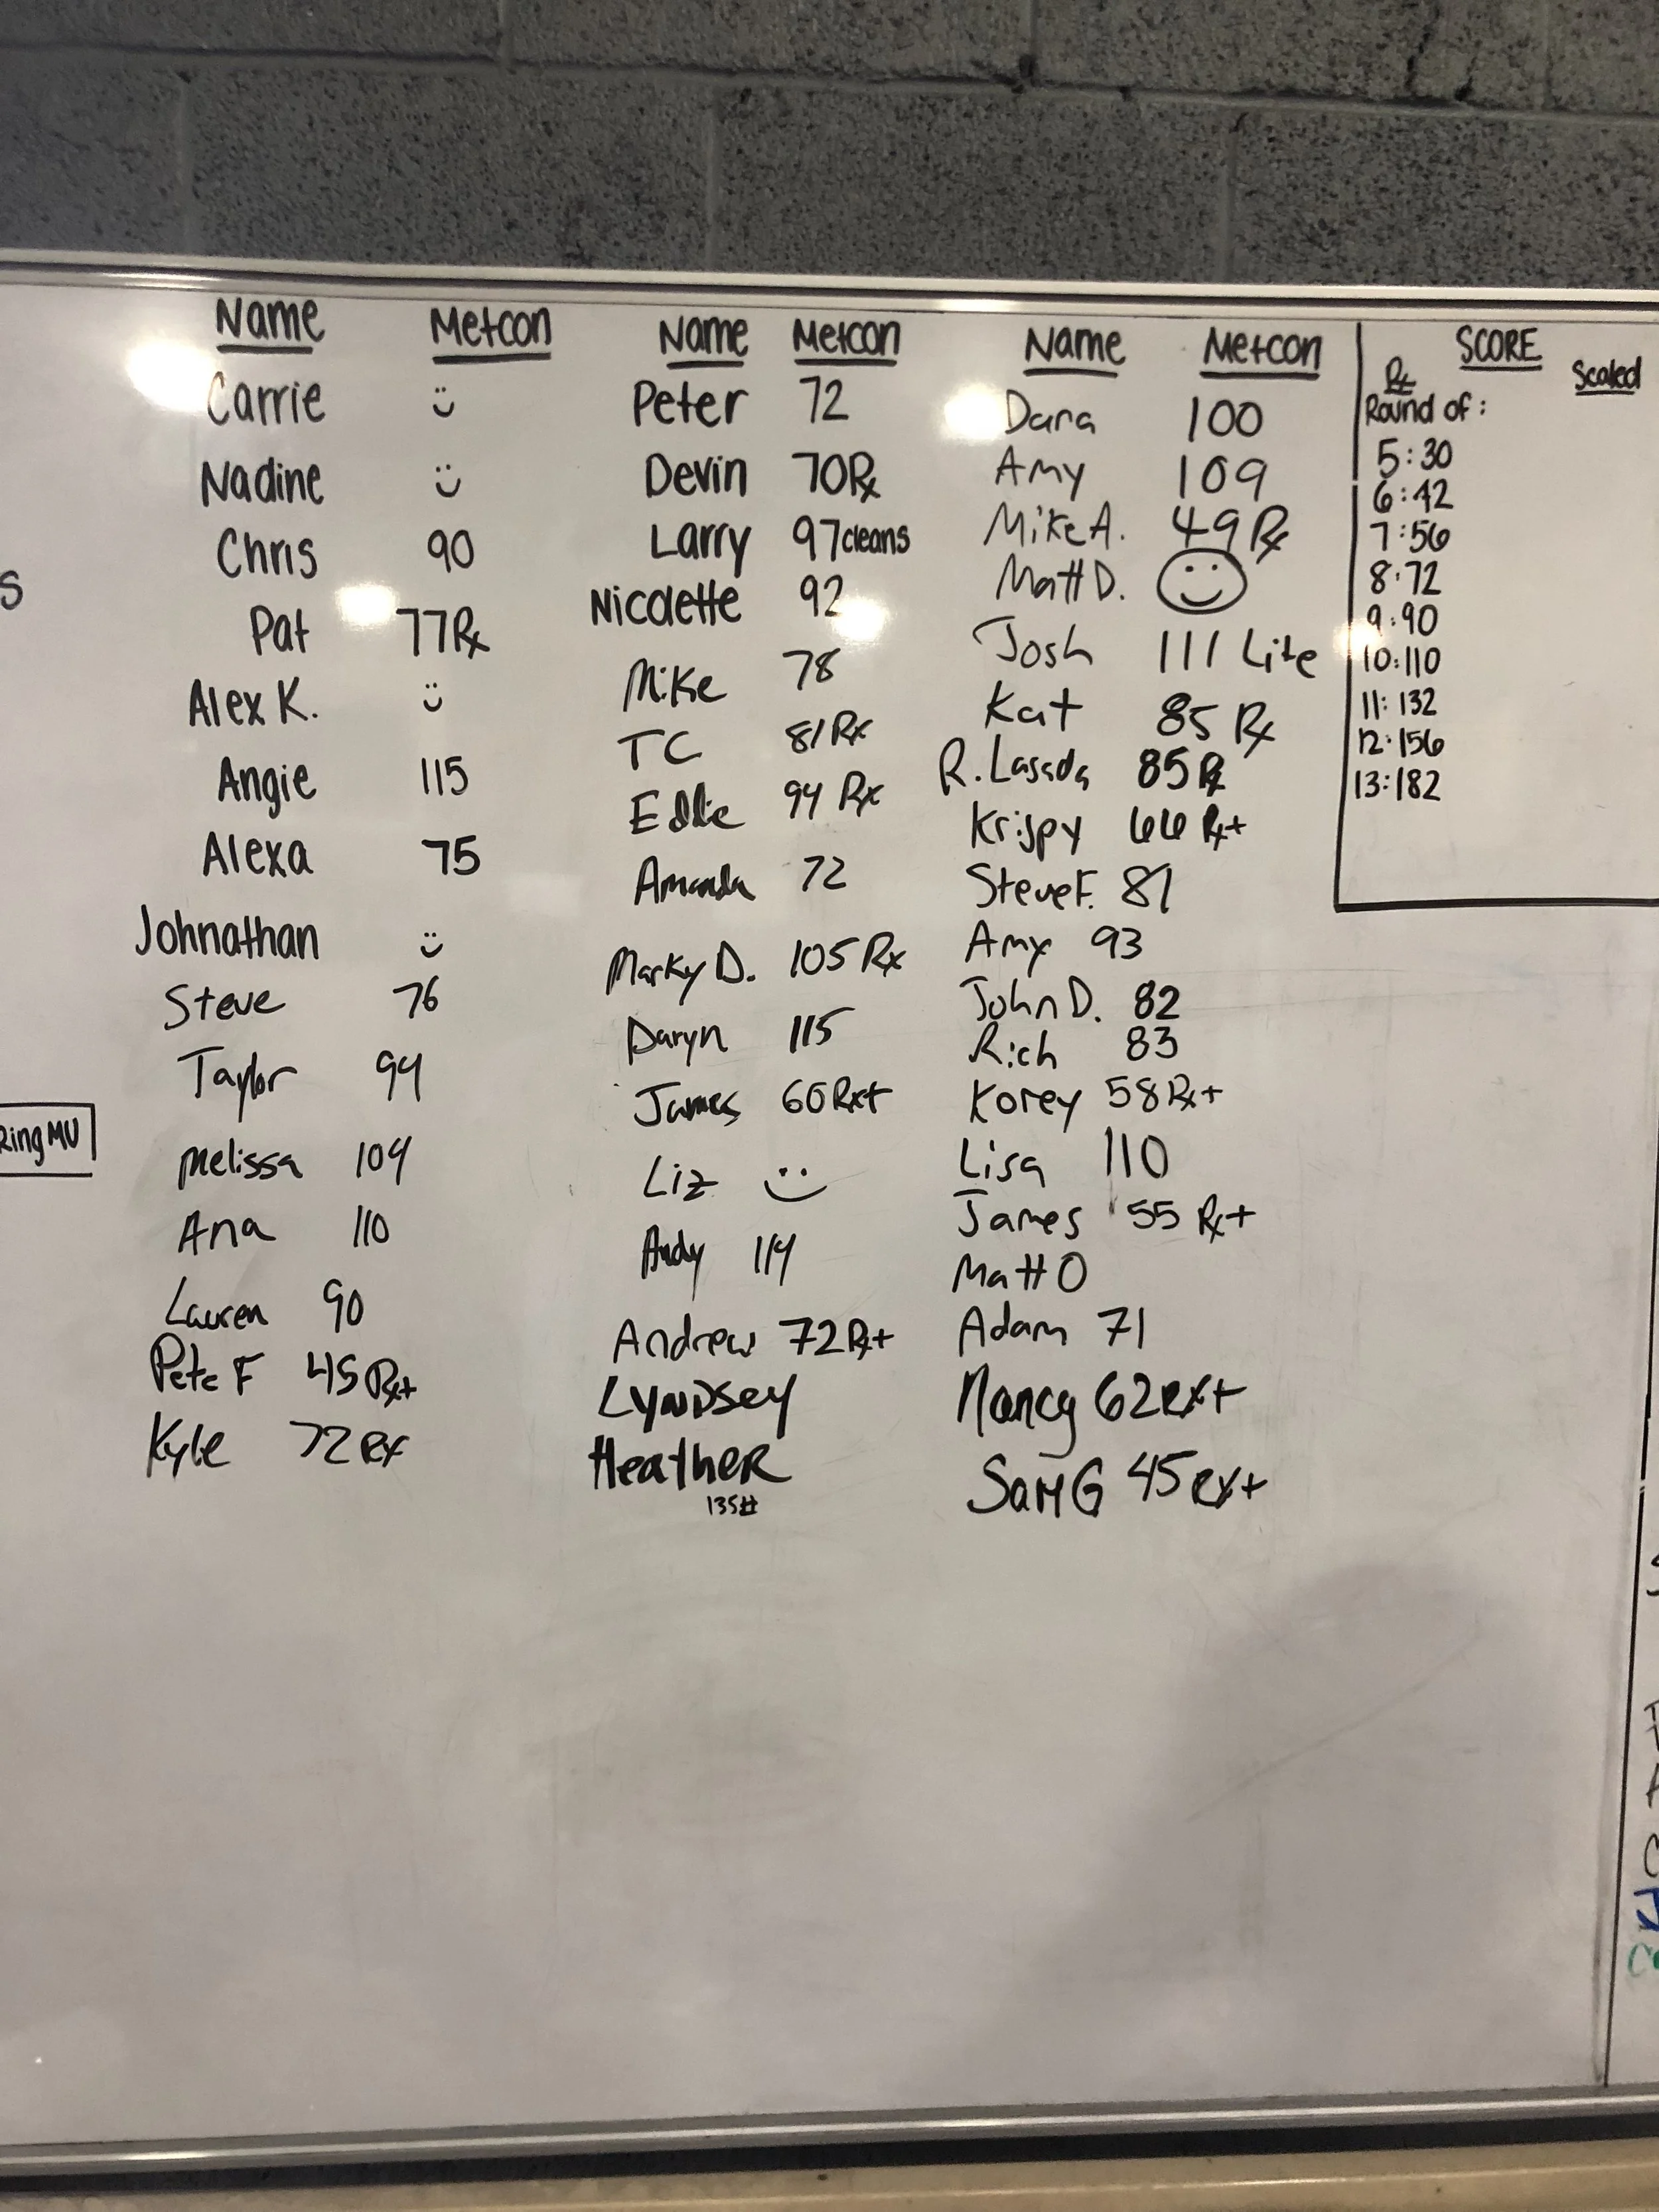 Name Metcon
Carrie :)
Nadine :)
Chris 90
Pat 77Rx
Alex K. :)
Angie 115
Alexa 75
Johnathan :)
Steve 76
Taylor 94
Melissa 104
Ana 110
Lauren 90
Pete F 45 Rx+
Kyle 72 Rx
Name Metcon
Peter 72
Devin 70Rx
Larry 97 cleans
Nicolette 92
Mike 78
TC 81 Rx
Eddie 94 Rx
Amanda 72
Marky D. 105 Rx
Daryn 115
James 60 Rx+
Liz :)
Andy 114
Andrew 72 Rx+
Lyndsey
Heather
135#
Name Metcon
Dara 100
Amy 109
Mike A. 49 Rx
Matt D. :)
Josh 111 Lite
Kat 85 Rx
R. Lasada 85 Rx
Krispy 66 Rx+
Steve F. 81
Amy 93
John D. 82
Rich 83
Korey 58 Rx+
Lisa 110
James 55 Rx+
Matt O
Adam 71
Nancy 62 Rx+
Sam G 45 Rx+
SCORE
Rx Scaled
Round of:
5:30
6:42
7:56
8:72
9:90
10:110
11:132
12:156
13:182
Ring MU